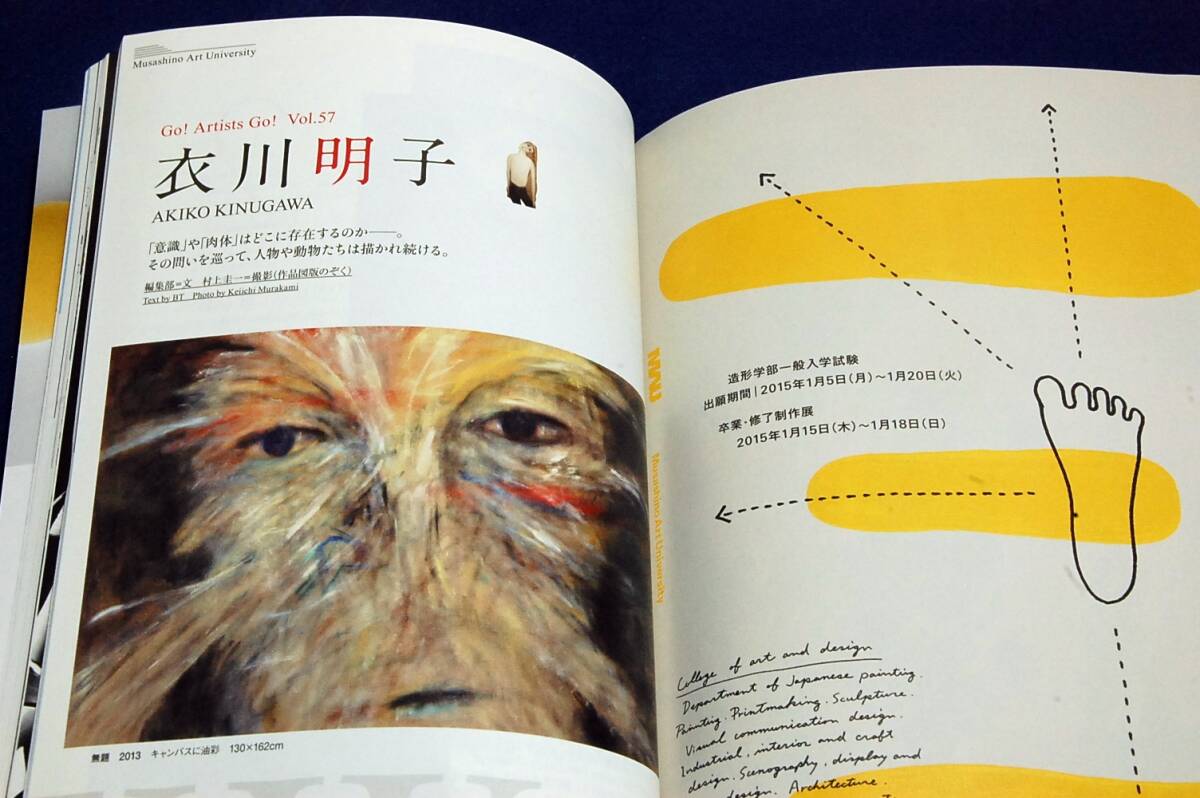 Musashino Art University
Go! Artists Go! Vol.57
衣川明子
AKIKO KINUGAWA
「意識」や「肉体」はどこに存在するのか——。
その問いを巡って、人物や動物たちは描かれ続ける。
編集部=文 村上圭一=撮影(作品図版のぞく)
Text by BT Photo by Keiichi Murakami
無題 2013 キャンバスに油彩 130×162cm
MAU
Musashino Art University
造形学部一般入学試験
出願期間|2015年1月5日(月)~1月20日(火)
卒業・修了制作展
2015年1月15日(木)~1月18日(日)
College of art and design
Department of Japanese painting.
Painting. Printmaking. Sculpture.
Visual communication design.
Industrial, interior and craft
design. Scenography, display and
design. Architecture.